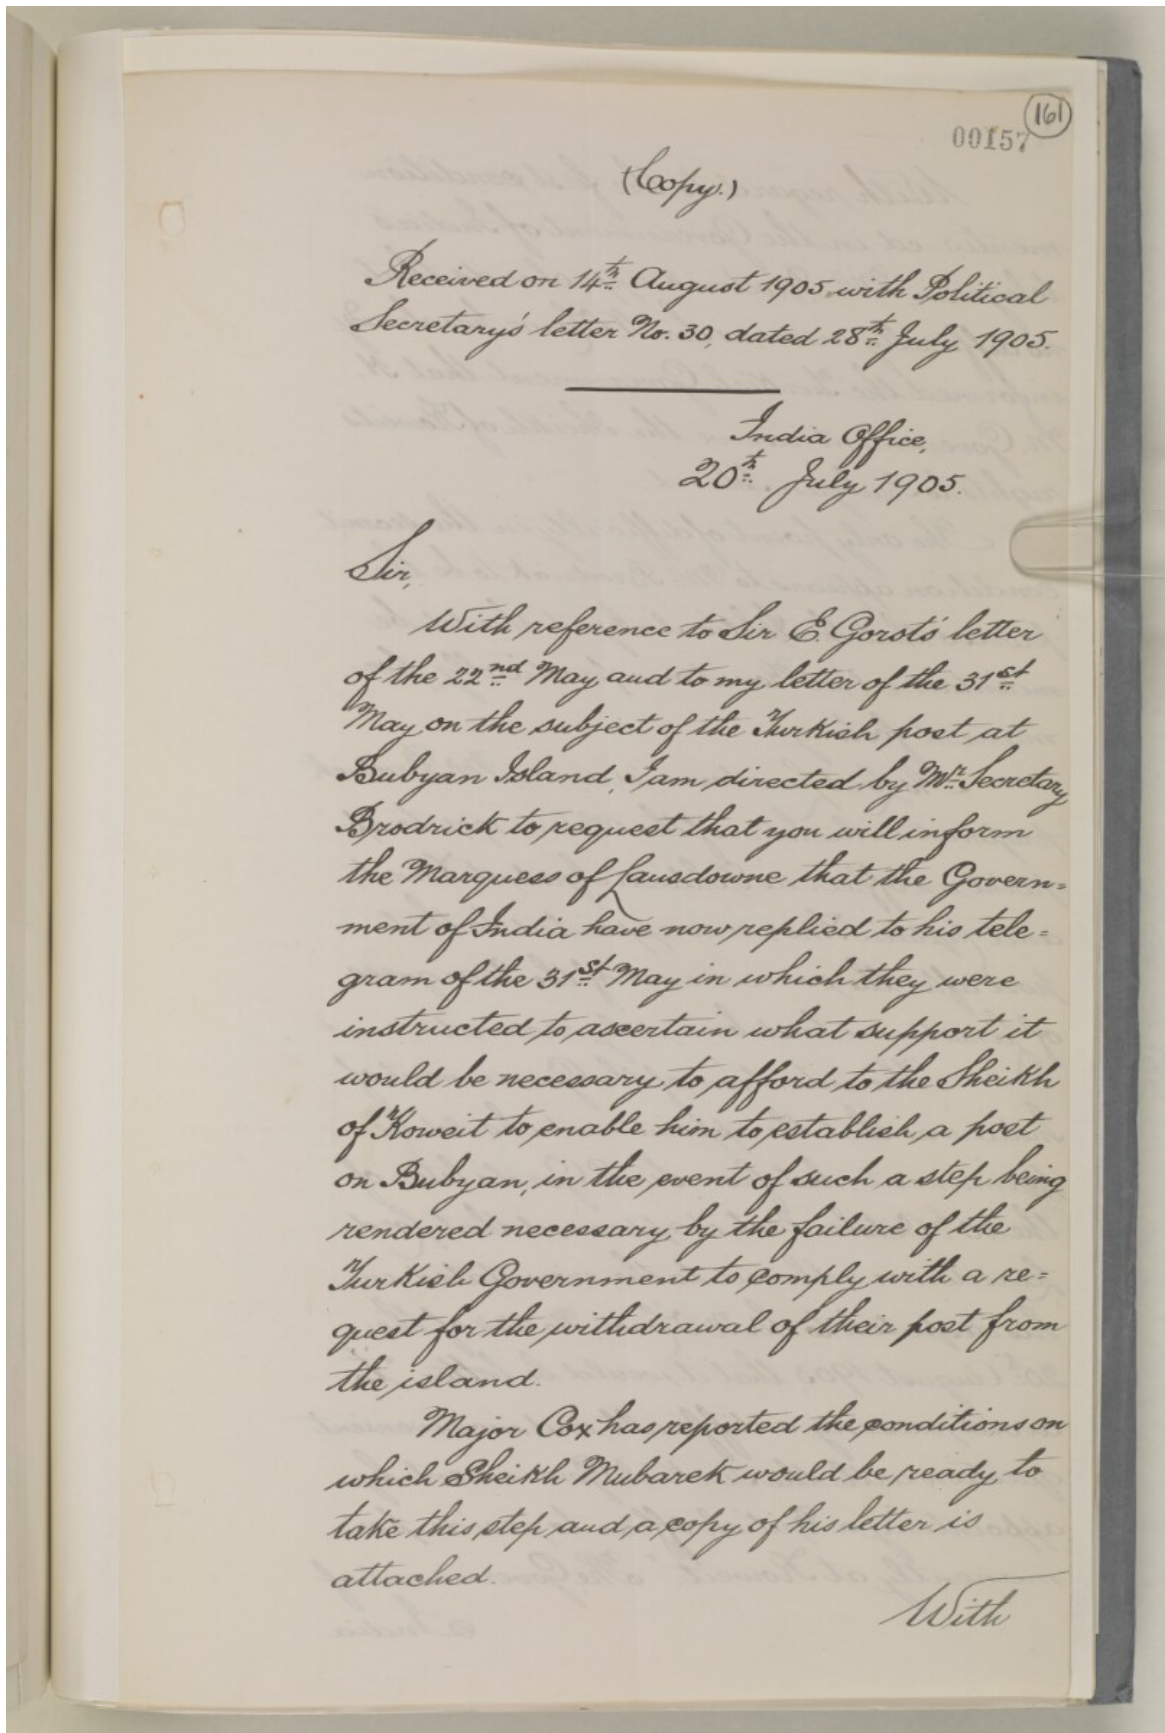 161
00157
(Copy.)
Received on 14th August 1905 with Political
Secretary's letter No. 30, dated 28th July 1905.
India Office,
20th July 1905.
Sir,
With reference to Sir E. Gorst's letter
of the 22nd May and to my letter of the 31st
May on the subject of the Turkish post at
Bubyan Island, I am directed by Mr. Secretary
Brodrick to request that you will inform
the Marquess of Lansdowne that the Govern=
ment of India have now replied to his tele=
gram of the 31st May in which they were
instructed to ascertain what support it
would be necessary to afford to the Sheikh
of Koweit to enable him to establish a post
on Bubyan, in the event of such a step being
rendered necessary by the failure of the
Turkish Government to comply with a re=
quest for the withdrawal of their post from
the island.
Major Cox has reported the conditions on
which Sheikh Mubarek would be ready to
take this step and a copy of his letter is
attached.
With